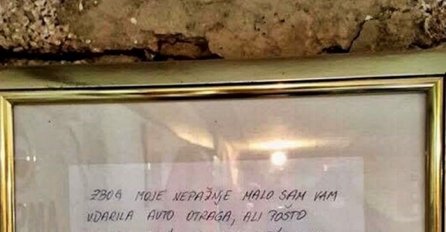 ZBOG MOJE NEPAŽNJE MALO SAM VAM
UDARILA AUTO OTRAGA, ALI POŠTO